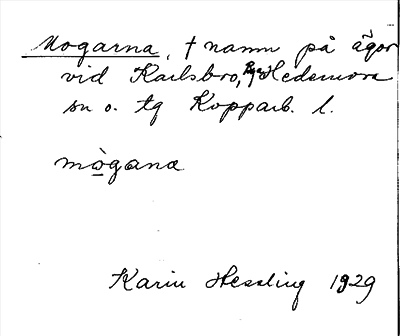 Mogarna, † namn på ägor
vid Karlsbro, Hedemora
sn o. tg Kopparb. l.
mògana
Karin Hessling 1929